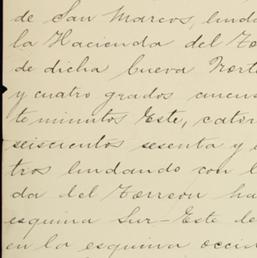 de San Marcos, linda
la Hacienda del Tor
de dicha Cueva Norte
y cuatro grados cincue
te minutos Este, cator
seiscientos sesenta y
tros lindando con l
da del Torreon ha
esquina Sur-Este de
en la esquina occid